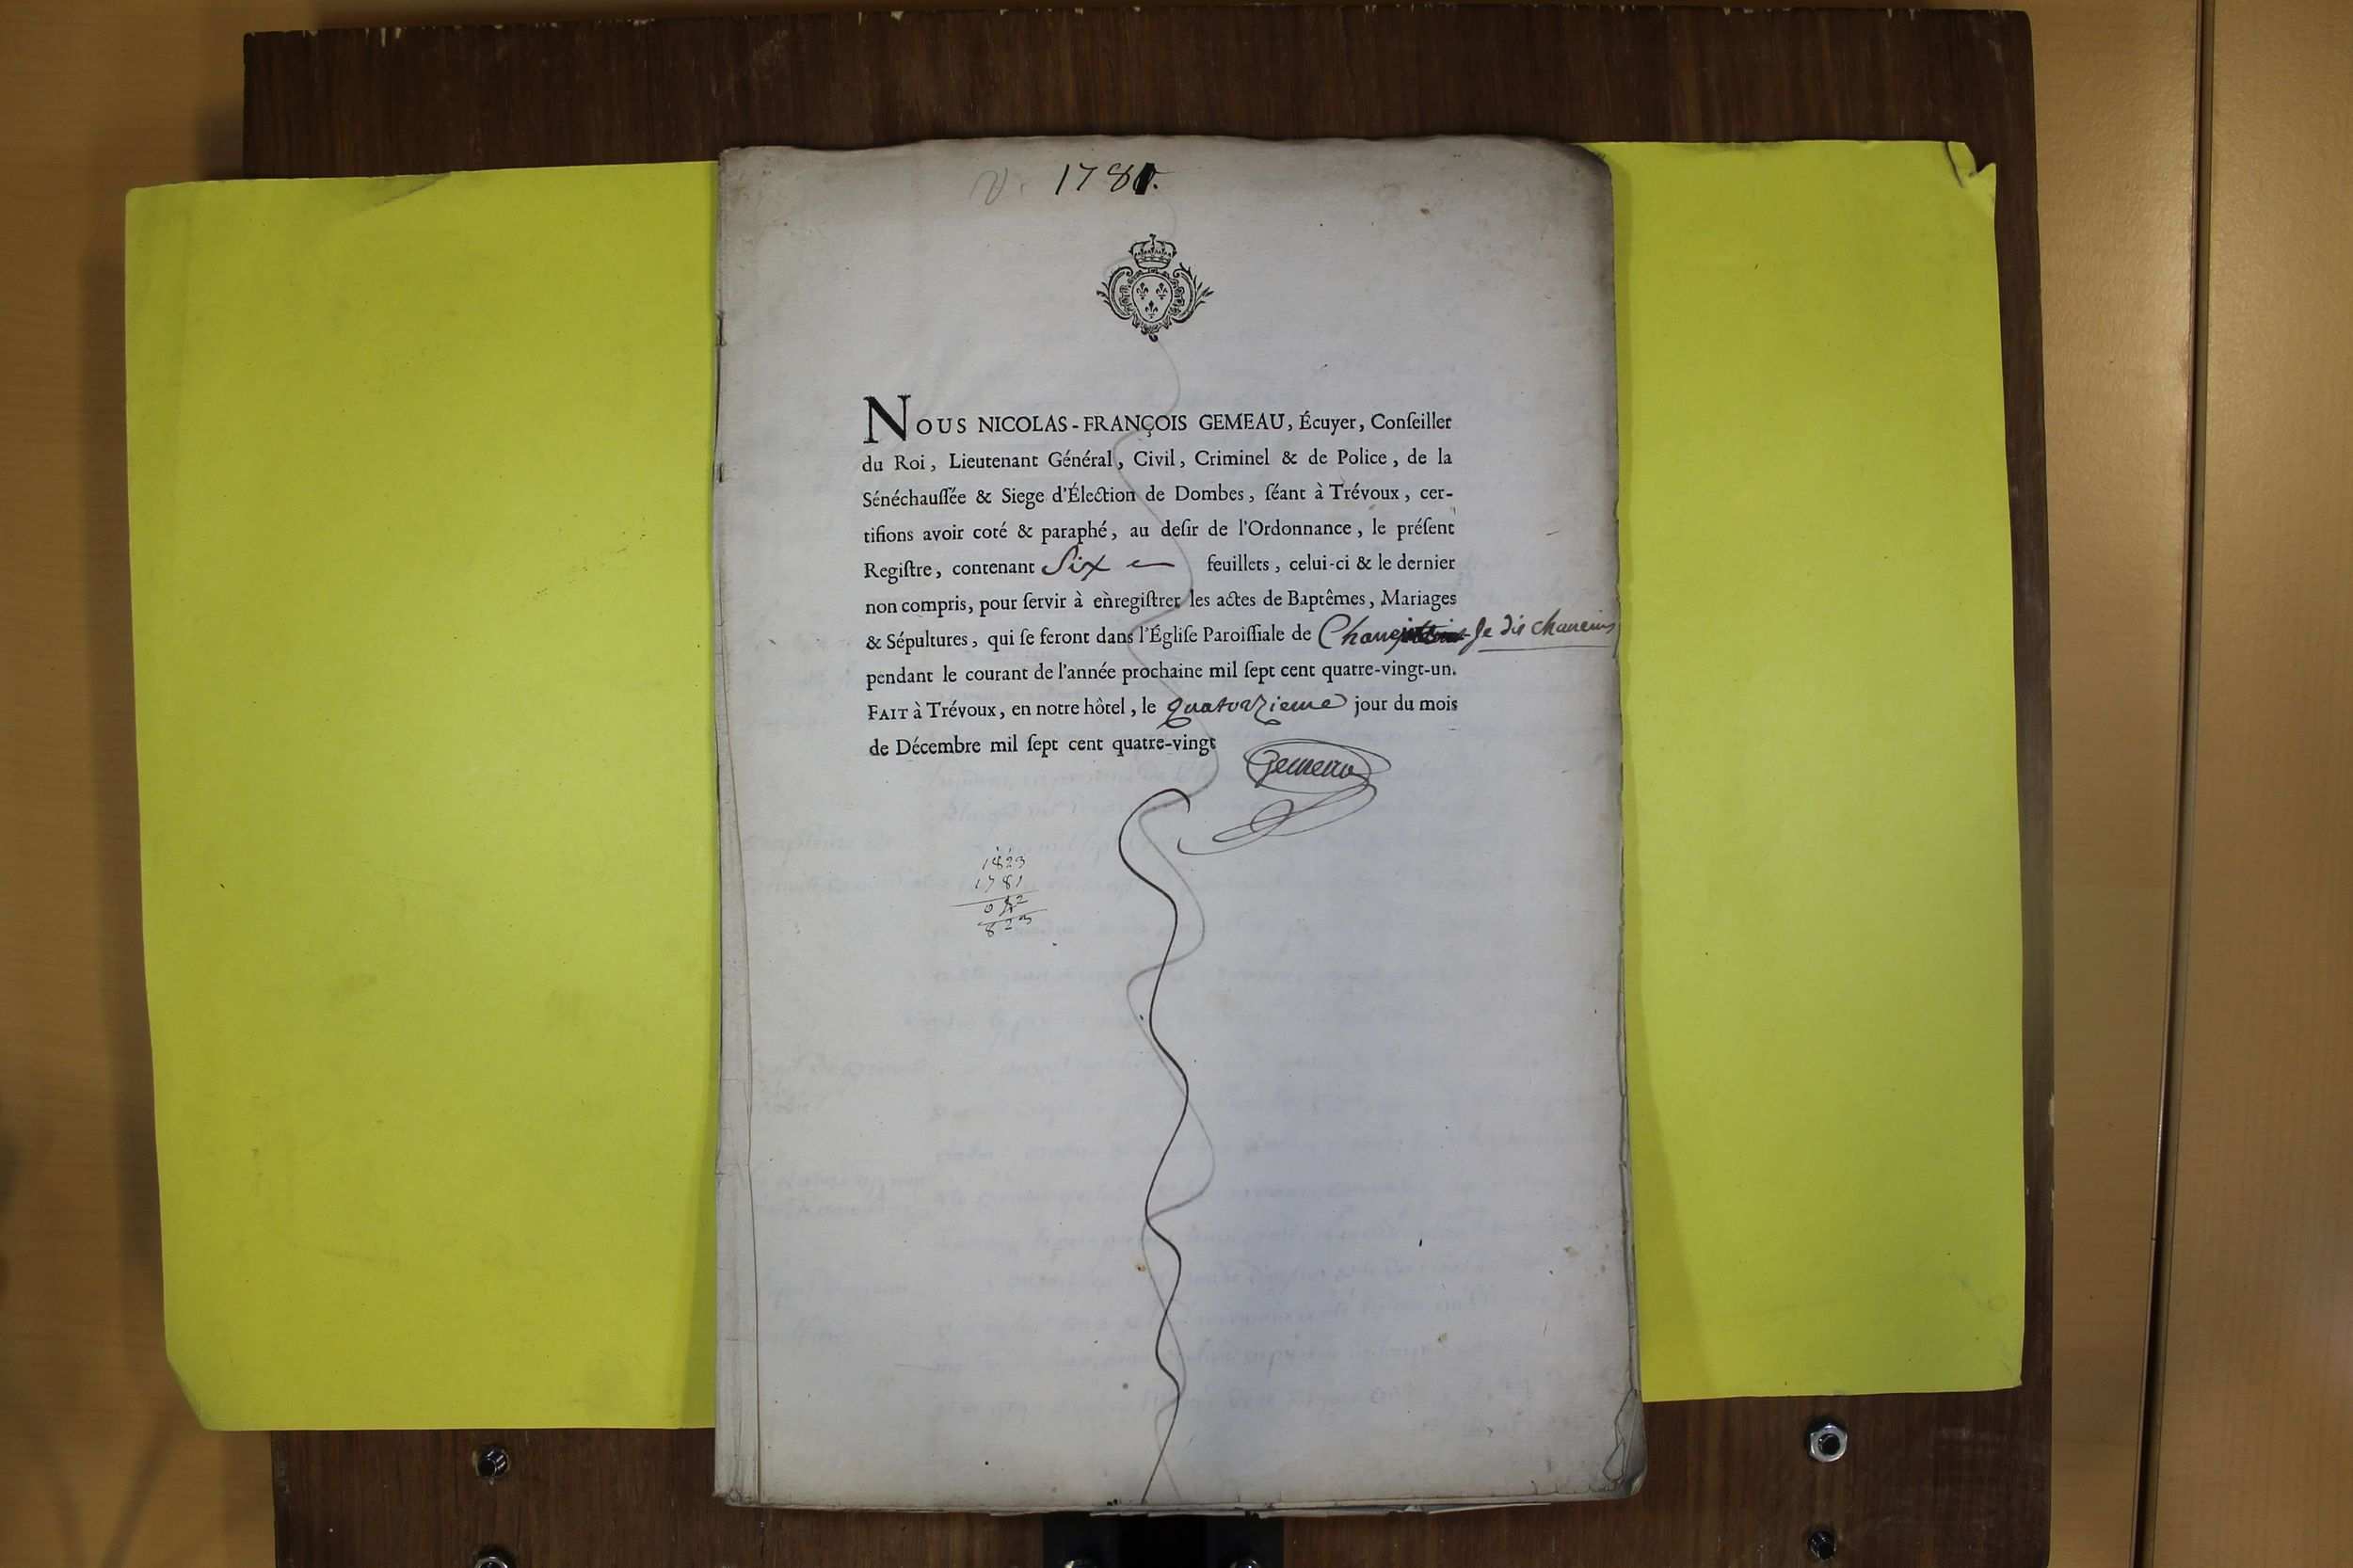 1781.
NOUS NICOLAS-FRANÇOIS GEMEAU, Écuyer, Conſeiller
du Roi, Lieutenant Général, Civil, Criminel & de Police, de la
Sénéchauſſée & Siege d'Élection de Dombes, ſéant à Trévoux, cer-
tifions avoir coté & paraphé, au deſir de l'Ordonnance, le préſent
Regiſtre, contenant Six feuillets, celui-ci & le dernier
non compris, pour ſervir à enregiſtrer les actes de Baptêmes, Mariages
& Sépultures, qui ſe feront dans l'Égliſe Paroiſſiale de Je dis chaneins
pendant le courant de l'année prochaine mil ſept cent quatre-vingt-un.
FAIT à Trévoux, en notre hôtel, le quatorzieme jour du mois
de Décembre mil ſept cent quatre-vingt
Gemeau
1823
1781
042
823